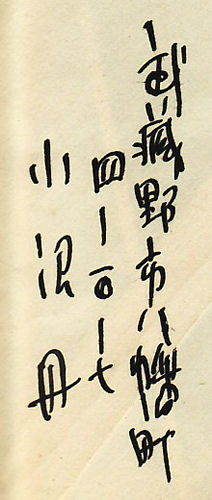 武蔵野市八幡町
四ー一〇ー七
小沼丹